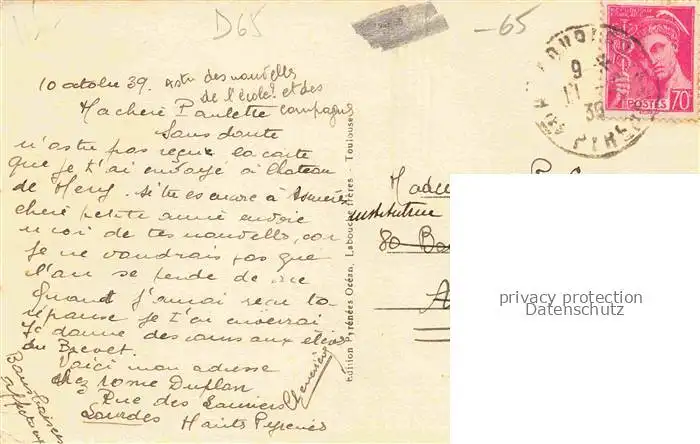 D65
-65
10 octobre 39. As tu des nouvelles
de l'école? et des
Ma chère Paulette compagnes
Sans doute
n'as tu pas reçue la carte
que je t'ai envoyé à Chateau
de Mery. Si tu es encore à Asnières
chère petite amie envoie
moi de tes nouvelles, car
je ne voudrais pas que
l'on se perde de vue
Quand j'aurai reçu ta
réponse je t'en enverrai
Je donne des cours aux élèves
du Brevet.
Voici mon adresse
chez Mme Duplan
Rue des
Lourdes Hauts Pyrenées
Geneviève
Bons baisers
Edition Pyrénées Océan, Labouche frères - Toulouse
institutrice
80
A
9
39
PYR
POSTES 70c
privacy protection
Datenschutz